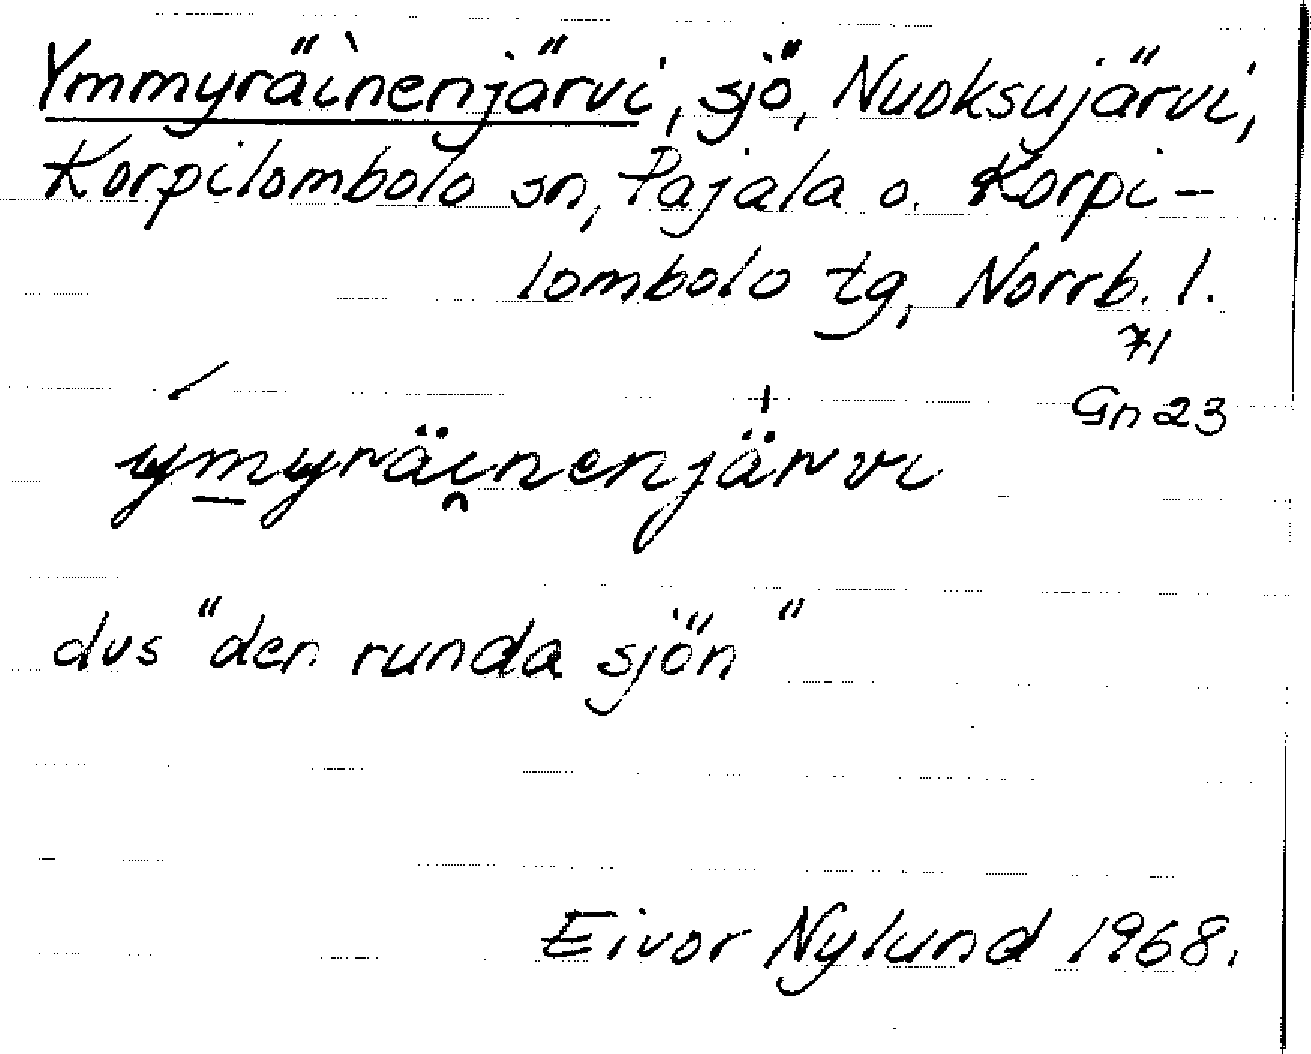 Ymmyräinenjärvi, sjö, Nuoksujärvi,
Korpilombolo sn, Pajala o. Korpi-
lombolo tg, Norrb. l.
71
Gn 23
ým̱yräi̯nenjärvi
dvs "den runda sjön"
Eivor Nylund 1968.